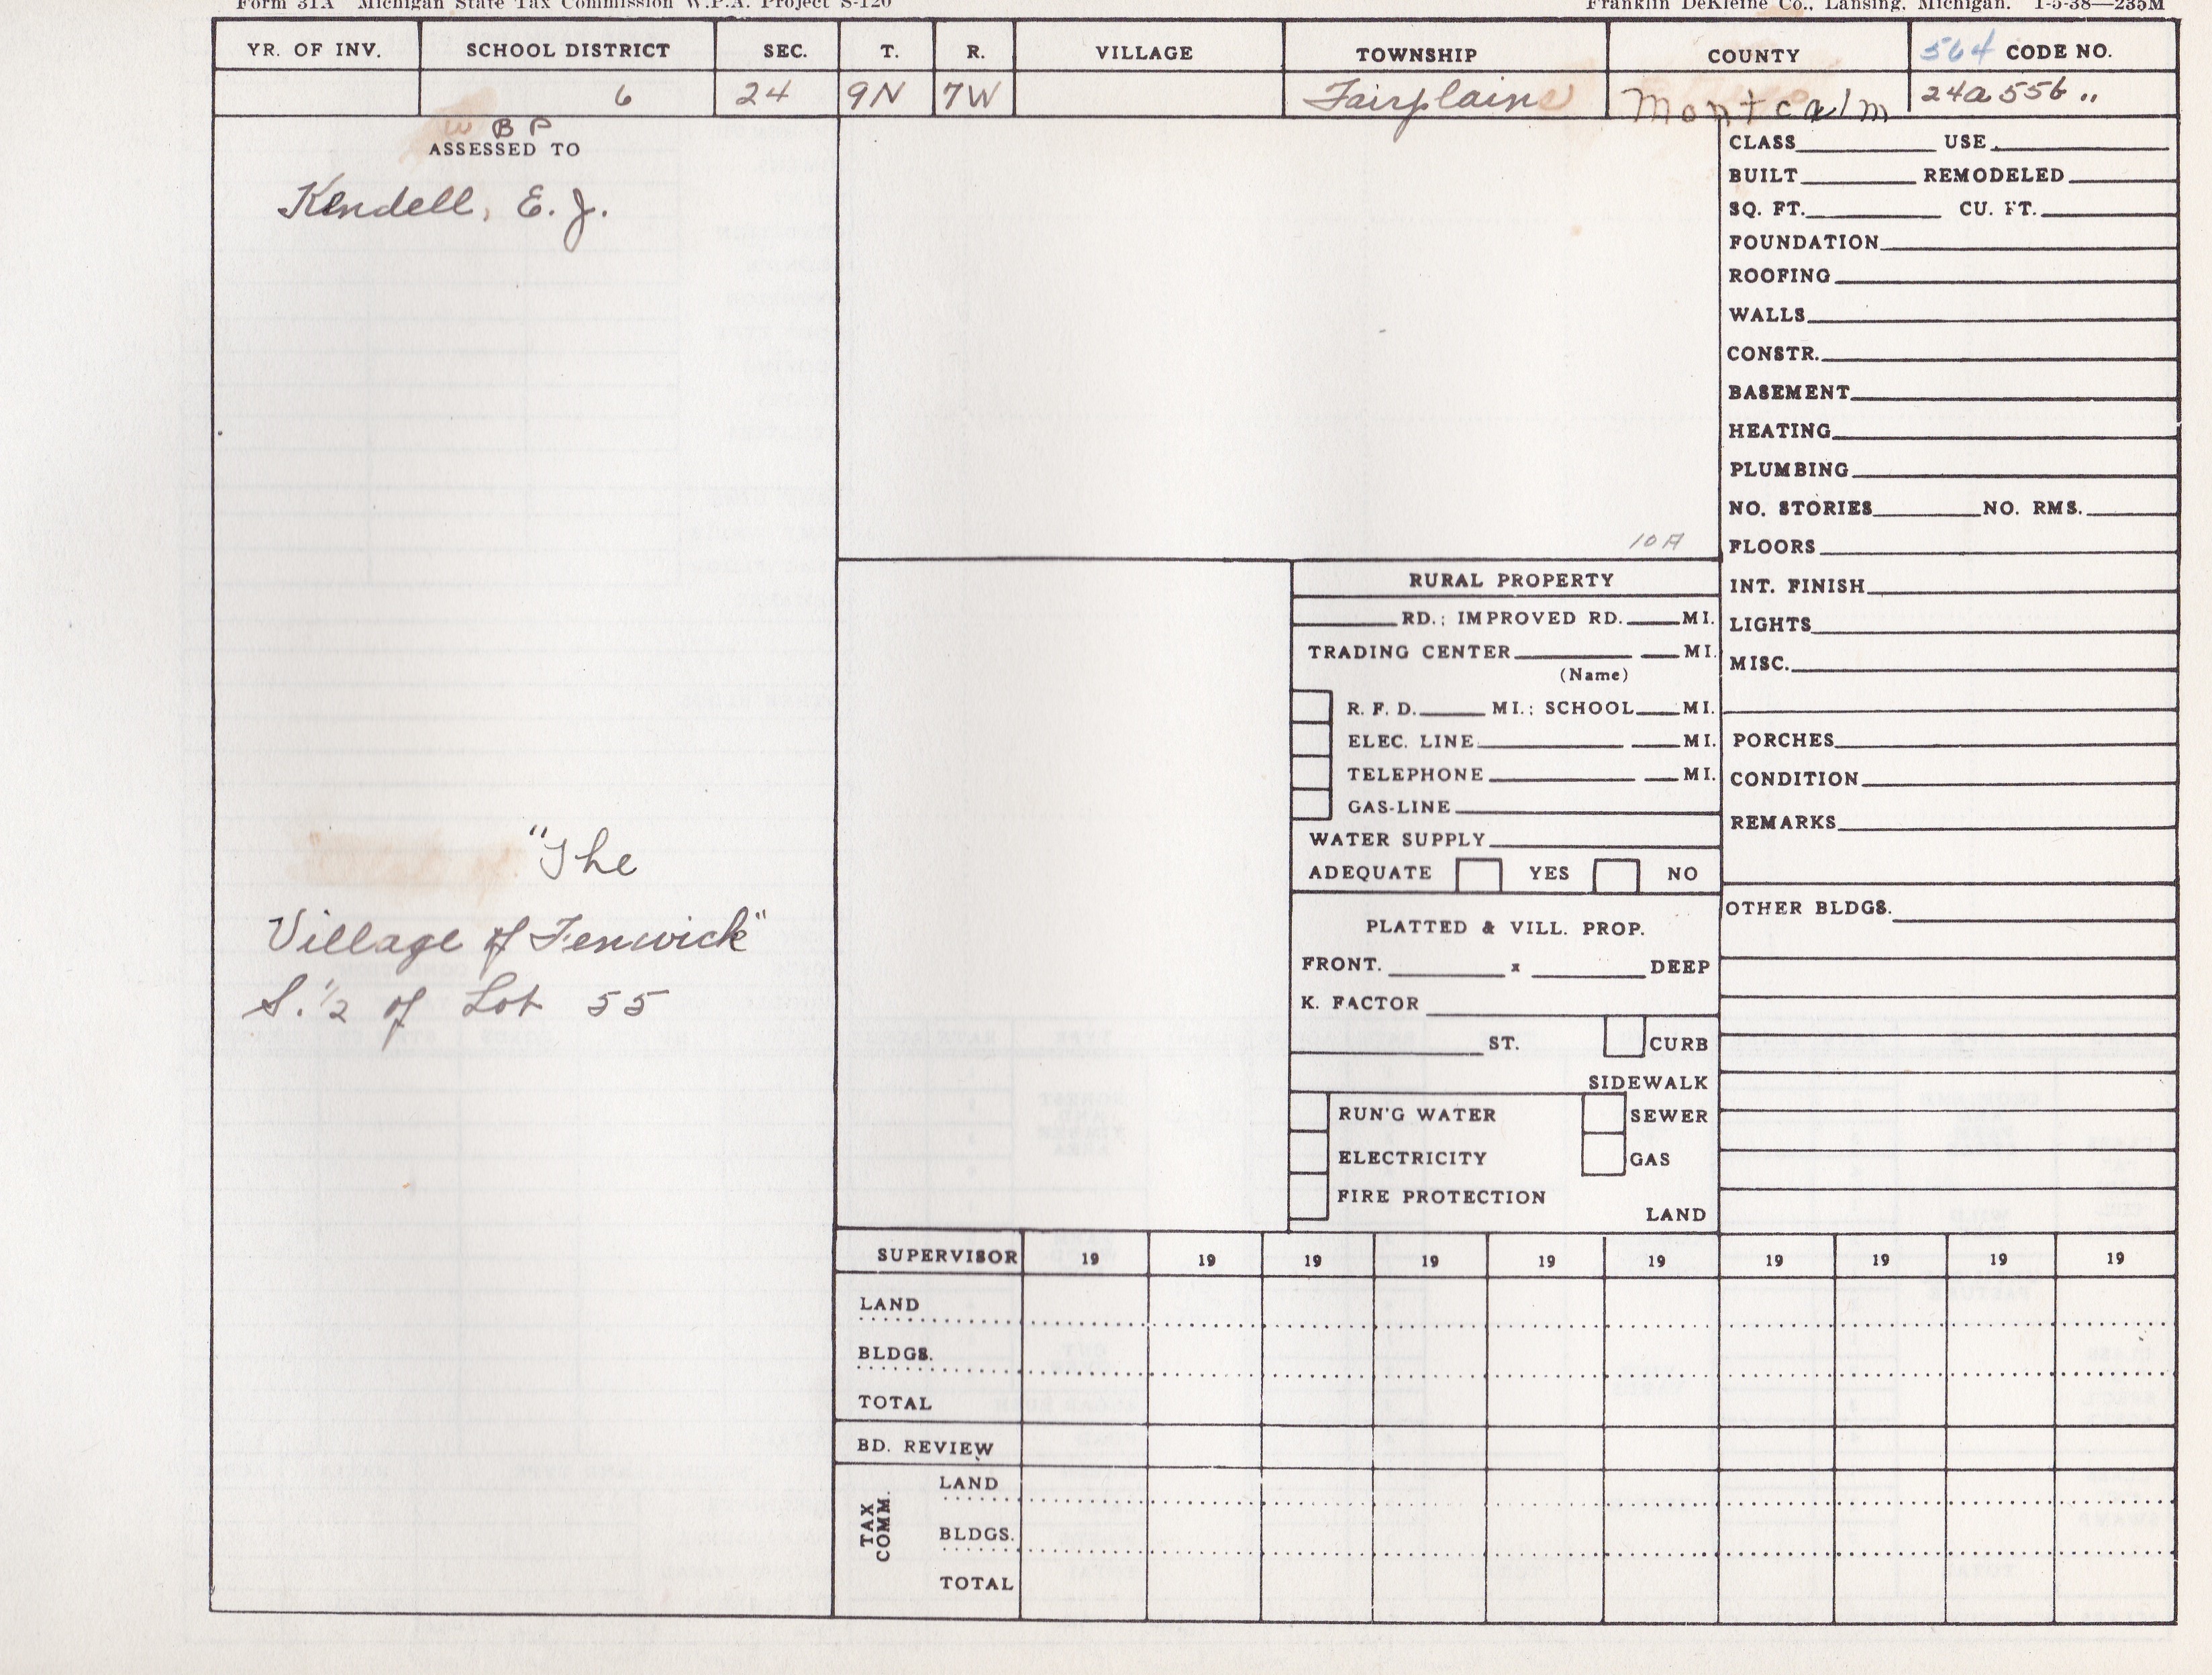 Form 31A Michigan State Tax Commission W.P.A. Project S-120 Franklin DeKleine Co., Lansing, Michigan. 1-5-38—235M
YR. OF INV. SCHOOL DISTRICT SEC. T. R. VILLAGE TOWNSHIP COUNTY 564 CODE NO.
6 24 9N 7W Fairplains Montcalm 24a556 ,,
W B P
ASSESSED TO
Kendell, E. J.
"The
Village of Fenwick"
S. 1/2 of Lot 55
10 A
RURAL PROPERTY
RD.; IMPROVED RD. MI.
TRADING CENTER MI.
(Name)
R. F. D. MI.; SCHOOL MI.
ELEC. LINE MI.
TELEPHONE MI.
GAS-LINE
WATER SUPPLY
ADEQUATE YES NO
PLATTED & VILL. PROP.
FRONT. x DEEP
K. FACTOR
ST. CURB
SIDEWALK
RUN'G WATER SEWER
ELECTRICITY GAS
FIRE PROTECTION
LAND
CLASS USE
BUILT REMODELED
SQ. FT. CU. FT.
FOUNDATION
ROOFING
WALLS
CONSTR.
BASEMENT
HEATING
PLUMBING
NO. STORIES NO. RMS.
FLOORS
INT. FINISH
LIGHTS
MISC.
PORCHES
CONDITION
REMARKS
OTHER BLDGS.
SUPERVISOR 19 19 19 19 19 19 19 19 19 19
LAND
BLDGS.
TOTAL
BD. REVIEW
TAX COMM.
LAND
BLDGS.
TOTAL